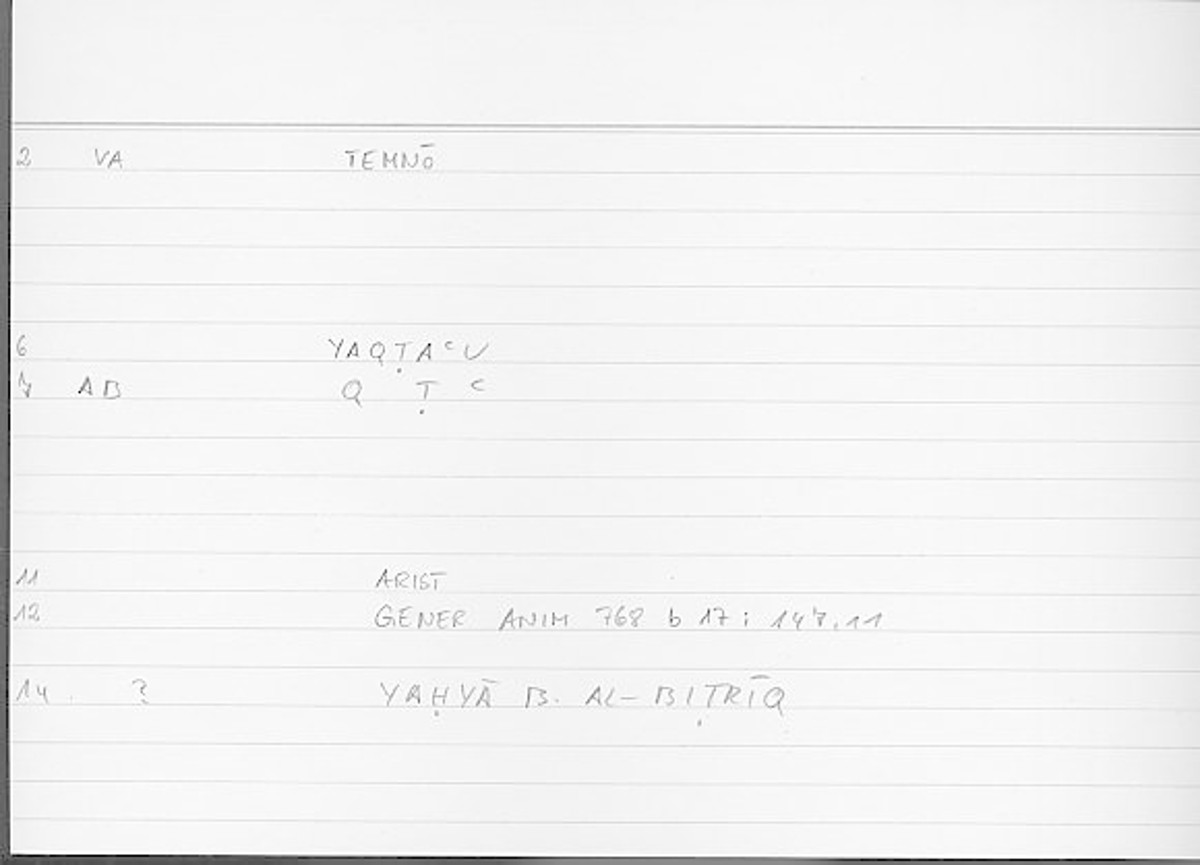 2 VA TEMNŌ
6 YAQṬAᶜU
7 AB Q Ṭ ᶜ
11 ARIST
12 GENER ANIM 768 b 17 ; 147,11
14 ? YAḤYĀ B. AL-BIṬRĪQ